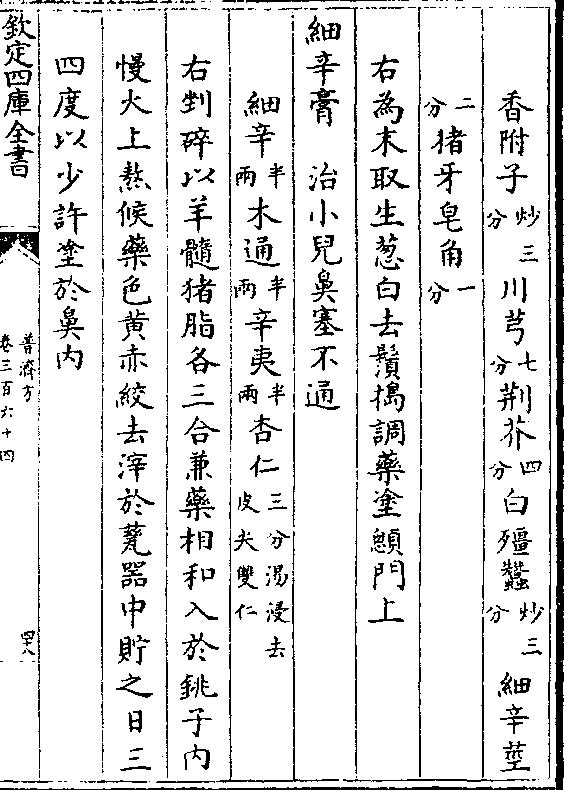 香附子炒三分川芎七分荆芥四分白殭蠶炒三分細辛莖
二分猪牙皂角一分
右為末取生葱白去鬚搗調藥塗顖門上
細辛膏　治小兒鼻塞不通
細辛半兩木通半兩辛夷半兩杏仁三分湯浸去皮尖雙仁
右剉碎以羊髓猪脂各三合兼藥相和入於銚子内
慢火上熬候藥色黄赤絞去滓於甆器中貯之日三
四度以少許塗於鼻内
欽定四庫全書
普濟方
卷三百六十四
四十八